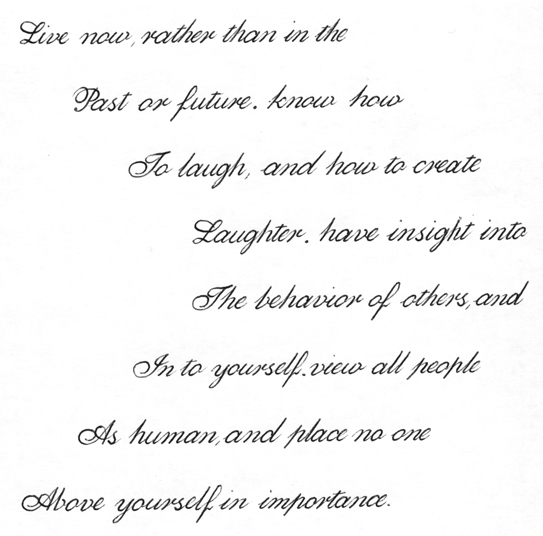 Live now, rather than in the
Past or future. know how
To laugh, and how to create
Laughter. have insight into
The behavior of others, and
In to yourself. view all people
As human, and place no one
Above yourself in importance.